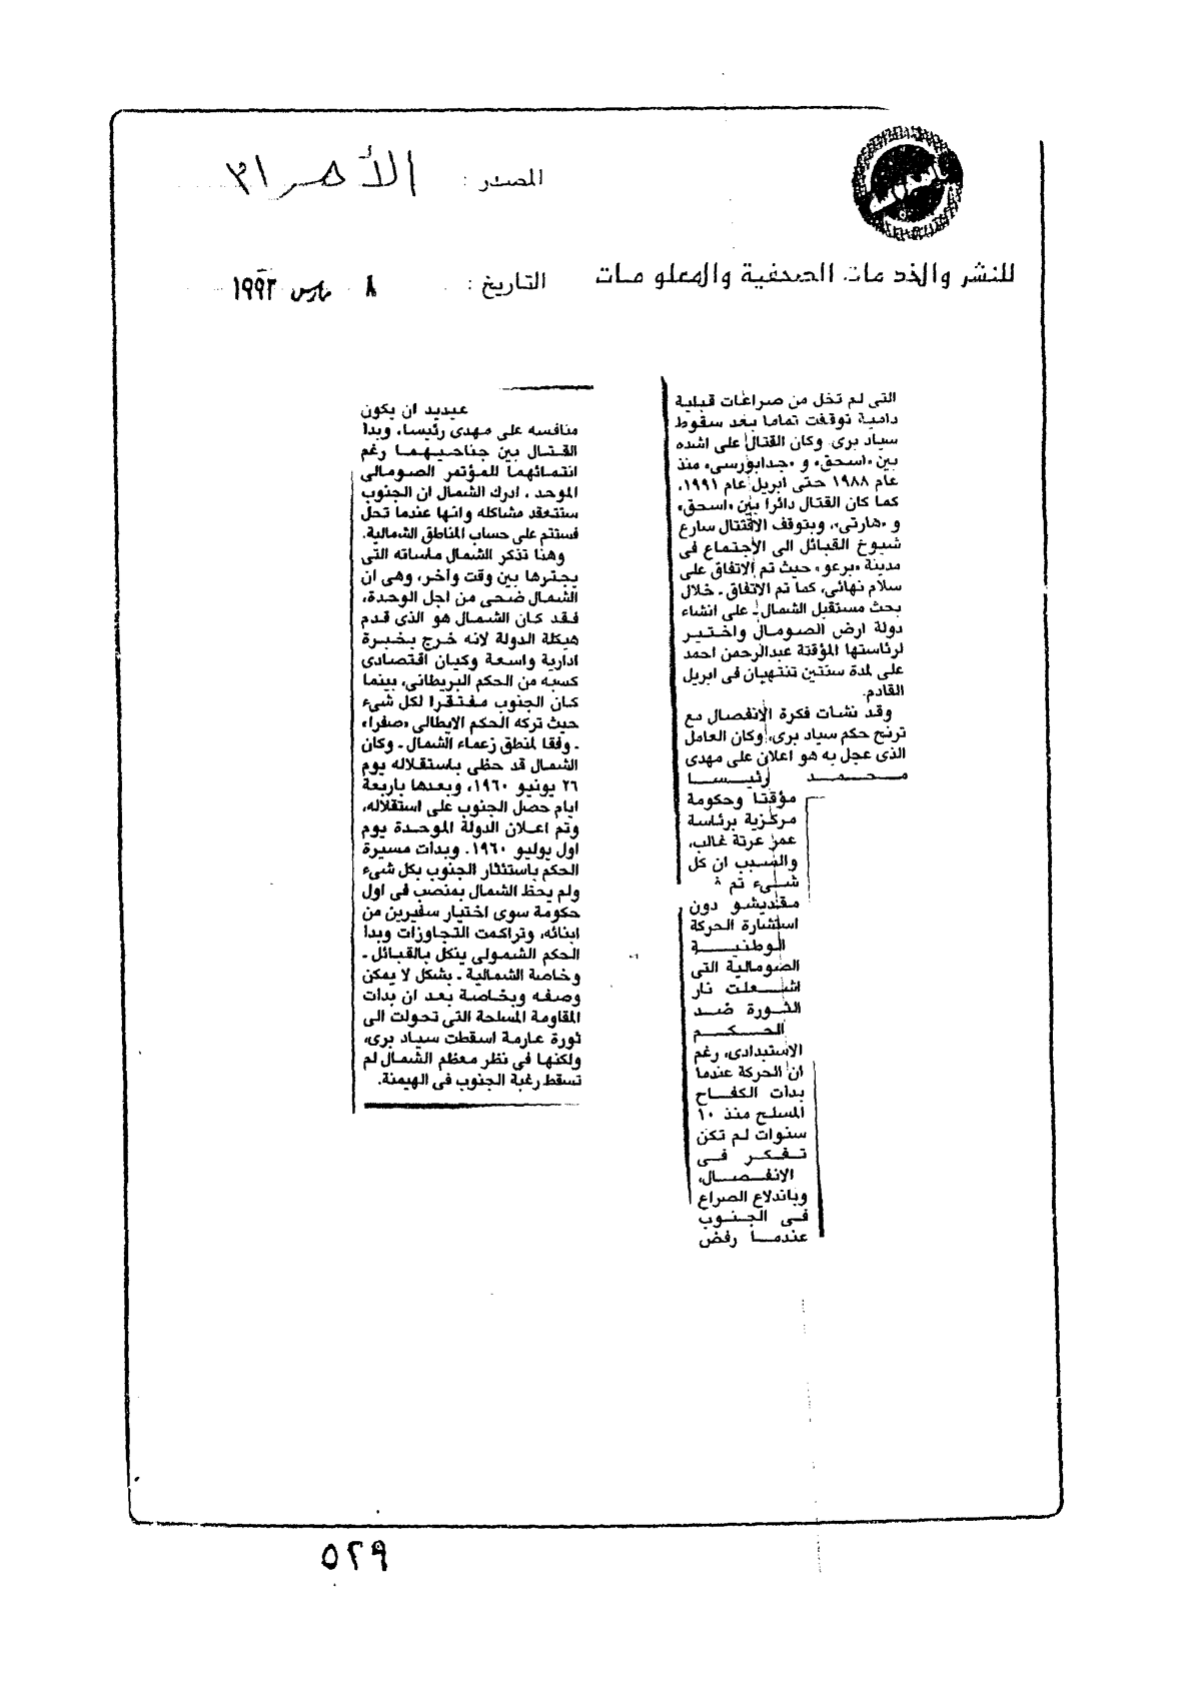 المصدر : الأهرام
للنشر والخدمات الصحفية والمعلومات
التاريخ : ٨ مارس ١٩٩٣
التى لم تخل من صراعات قبلية
دامية توقفت تماما بعد سقوط
سياد برى. وكان القتال على اشده
بين «اسحق» و «جدابورسى» منذ
عام ١٩٨٨ حتى ابريل عام ١٩٩١،
كما كان القتال دائرا بين «اسحق»
و «هارتى»، وبتوقف الاقتتال سارع
شيوخ القبائل الى الاجتماع فى
مدينة «برعو» حيث تم الاتفاق على
سلام نهائى، كما تم الاتفاق ـ خلال
بحث مستقبل الشمال ـ على انشاء
دولة ارض الصومال واختير
لرئاستها المؤقتة عبدالرحمن احمد
على لمدة سنتين تنتهيان فى ابريل
القادم.
وقد نشات فكرة الانفصال مع
ترنح حكم سياد برى، وكان العامل
الذى عجل به هو اعلان على مهدى
محمد رئيسا
مؤقتا وحكومة
مركزية برئاسة
عمر عرتة غالب،
والسبب ان كل
شىء تم
مقديشو دون
استشارة الحركة
الوطنية
الصومالية التى
اشعلت نار
الثورة ضد
الحكم
الاستبدادى، رغم
ان الحركة عندما
بدات الكفاح
المسلح منذ ١٠
سنوات لم تكن
تفكر فى
الانفصال،
وباندلاع الصراع
فى الجنوب
عندما رفض
عيديد ان يكون
منافسه على مهدى رئيسا، وبدا
القتال بين جناحيهما رغم
انتمائهما للمؤتمر الصومالى
الموحد ، ادرك الشمال ان الجنوب
ستتعقد مشاكله وانها عندما تحل
فستتم على حساب المناطق الشمالية.
وهنا تذكر الشمال ماساته التى
يجترها بين وقت وآخر، وهى ان
الشمال ضحى من اجل الوحدة،
فقد كان الشمال هو الذى قدم
هيكلة الدولة لانه خرج بخبرة
ادارية واسعة وكيان اقتصادى
كسبه من الحكم البريطانى، بينما
كان الجنوب مفتقرا لكل شىء
حيث تركه الحكم الايطالى «صفرا»
ـ وفقا لمنطق زعماء الشمال ـ وكان
الشمال قد حظى باستقلاله يوم
٢٦ يونيو ١٩٦٠، وبعدها باربعة
ايام حصل الجنوب على استقلاله،
وتم اعلان الدولة الموحدة يوم
اول يوليو ١٩٦٠. وبدات مسيرة
الحكم باستئثار الجنوب بكل شىء
ولم يحظ الشمال بمنصب فى اول
حكومة سوى اختيار سفيرين من
ابنائه، وتراكمت التجاوزات وبدا
الحكم الشمولى ينكل بالقبائل ـ
وخاصة الشمالية ـ بشكل لا يمكن
وصفه وبخاصة بعد ان بدات
المقاومة المسلحة التى تحولت الى
ثورة عارمة اسقطت سياد برى،
ولكنها فى نظر معظم الشمال لم
تسقط رغبة الجنوب فى الهيمنة.
٥٢٩